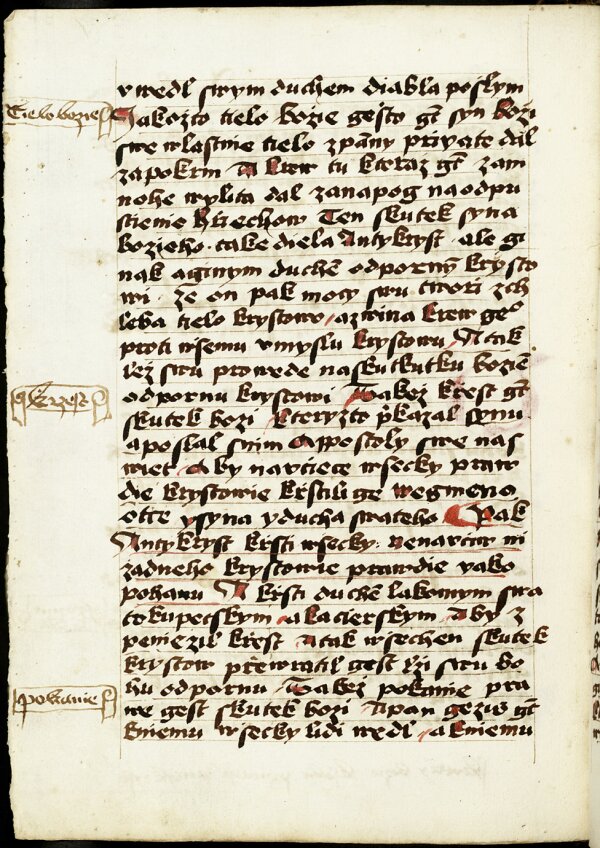 Tielo bozies
vwedl swym duchem diabla poslym
Jakozto tielo bozie gesto gt syn bozi
swe wlastnie tielo z pany priyate dal
za pokrm A krew tu kteraz gt zam
nohe wylita dal za napog na odpu
stienie hrziechow Ten skutek syna
bozieho take diela Antykryst ale gi
nak a ginym duchē odpornȳ krysto
wi ze on pak mocy swu tworzi z ch
leba tielo krystowo a z wina krew geo
proti wsemu vmyslu krystowu A tak
lez swu prowede na skutku bozien
odpornu krystowi Takez krzest gt
skutek bozi kteryzto prikazal synu
a poslal s nim Appostoly swe nas
wiet Aby navciece wsecky praw
die krystowie krstili ge we gmeno
otce y syna y ducha swateho Pak
Antykryst krsti wsecky nenavciw ni
zadneho krystowie prawdie yako
pohanu A krsti duchē lakomym swa
tokupeckym a lacierskym Aby z
peniezil krest A tak wsechen skutek
krystow prewratil gest lzi swu bo
hu odpornu Takez pokanie pra
we gest skutek bozi A pan gezus gt
k niemu wsecky lidi wedl a k niemu
Krzest
pokanie